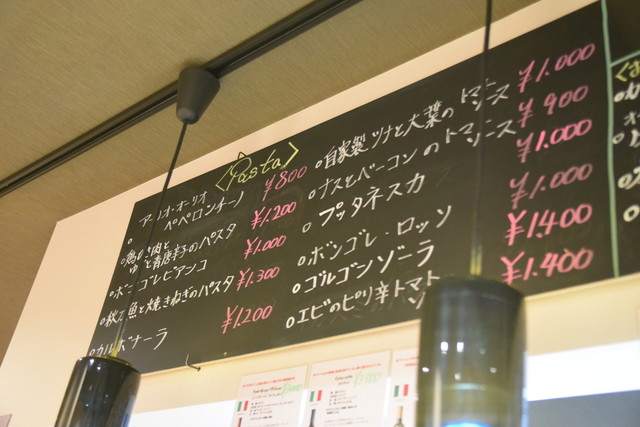 <Pasta>
○アーリオ・オーリオ
ペペロンチーノ ¥800
鶏ひき肉と
ゆずと青唐辛子のパスタ ¥1.200
○ボンゴレビアンコ ¥1.000
○秋刀魚と焼きねぎのパスタ ¥1.300
○カルボナーラ ¥1.200
○自家製ツナと大葉のトマト
ソース ¥1.000
○ナスとベーコンのトマト
ソース ¥900
○プッタネスカ ¥1.000
○ボンゴレ・ロッソ ¥1.000
○ゴルゴンゾーラ ¥1.400
○エビのピリ辛トマト
ソ ¥1.400